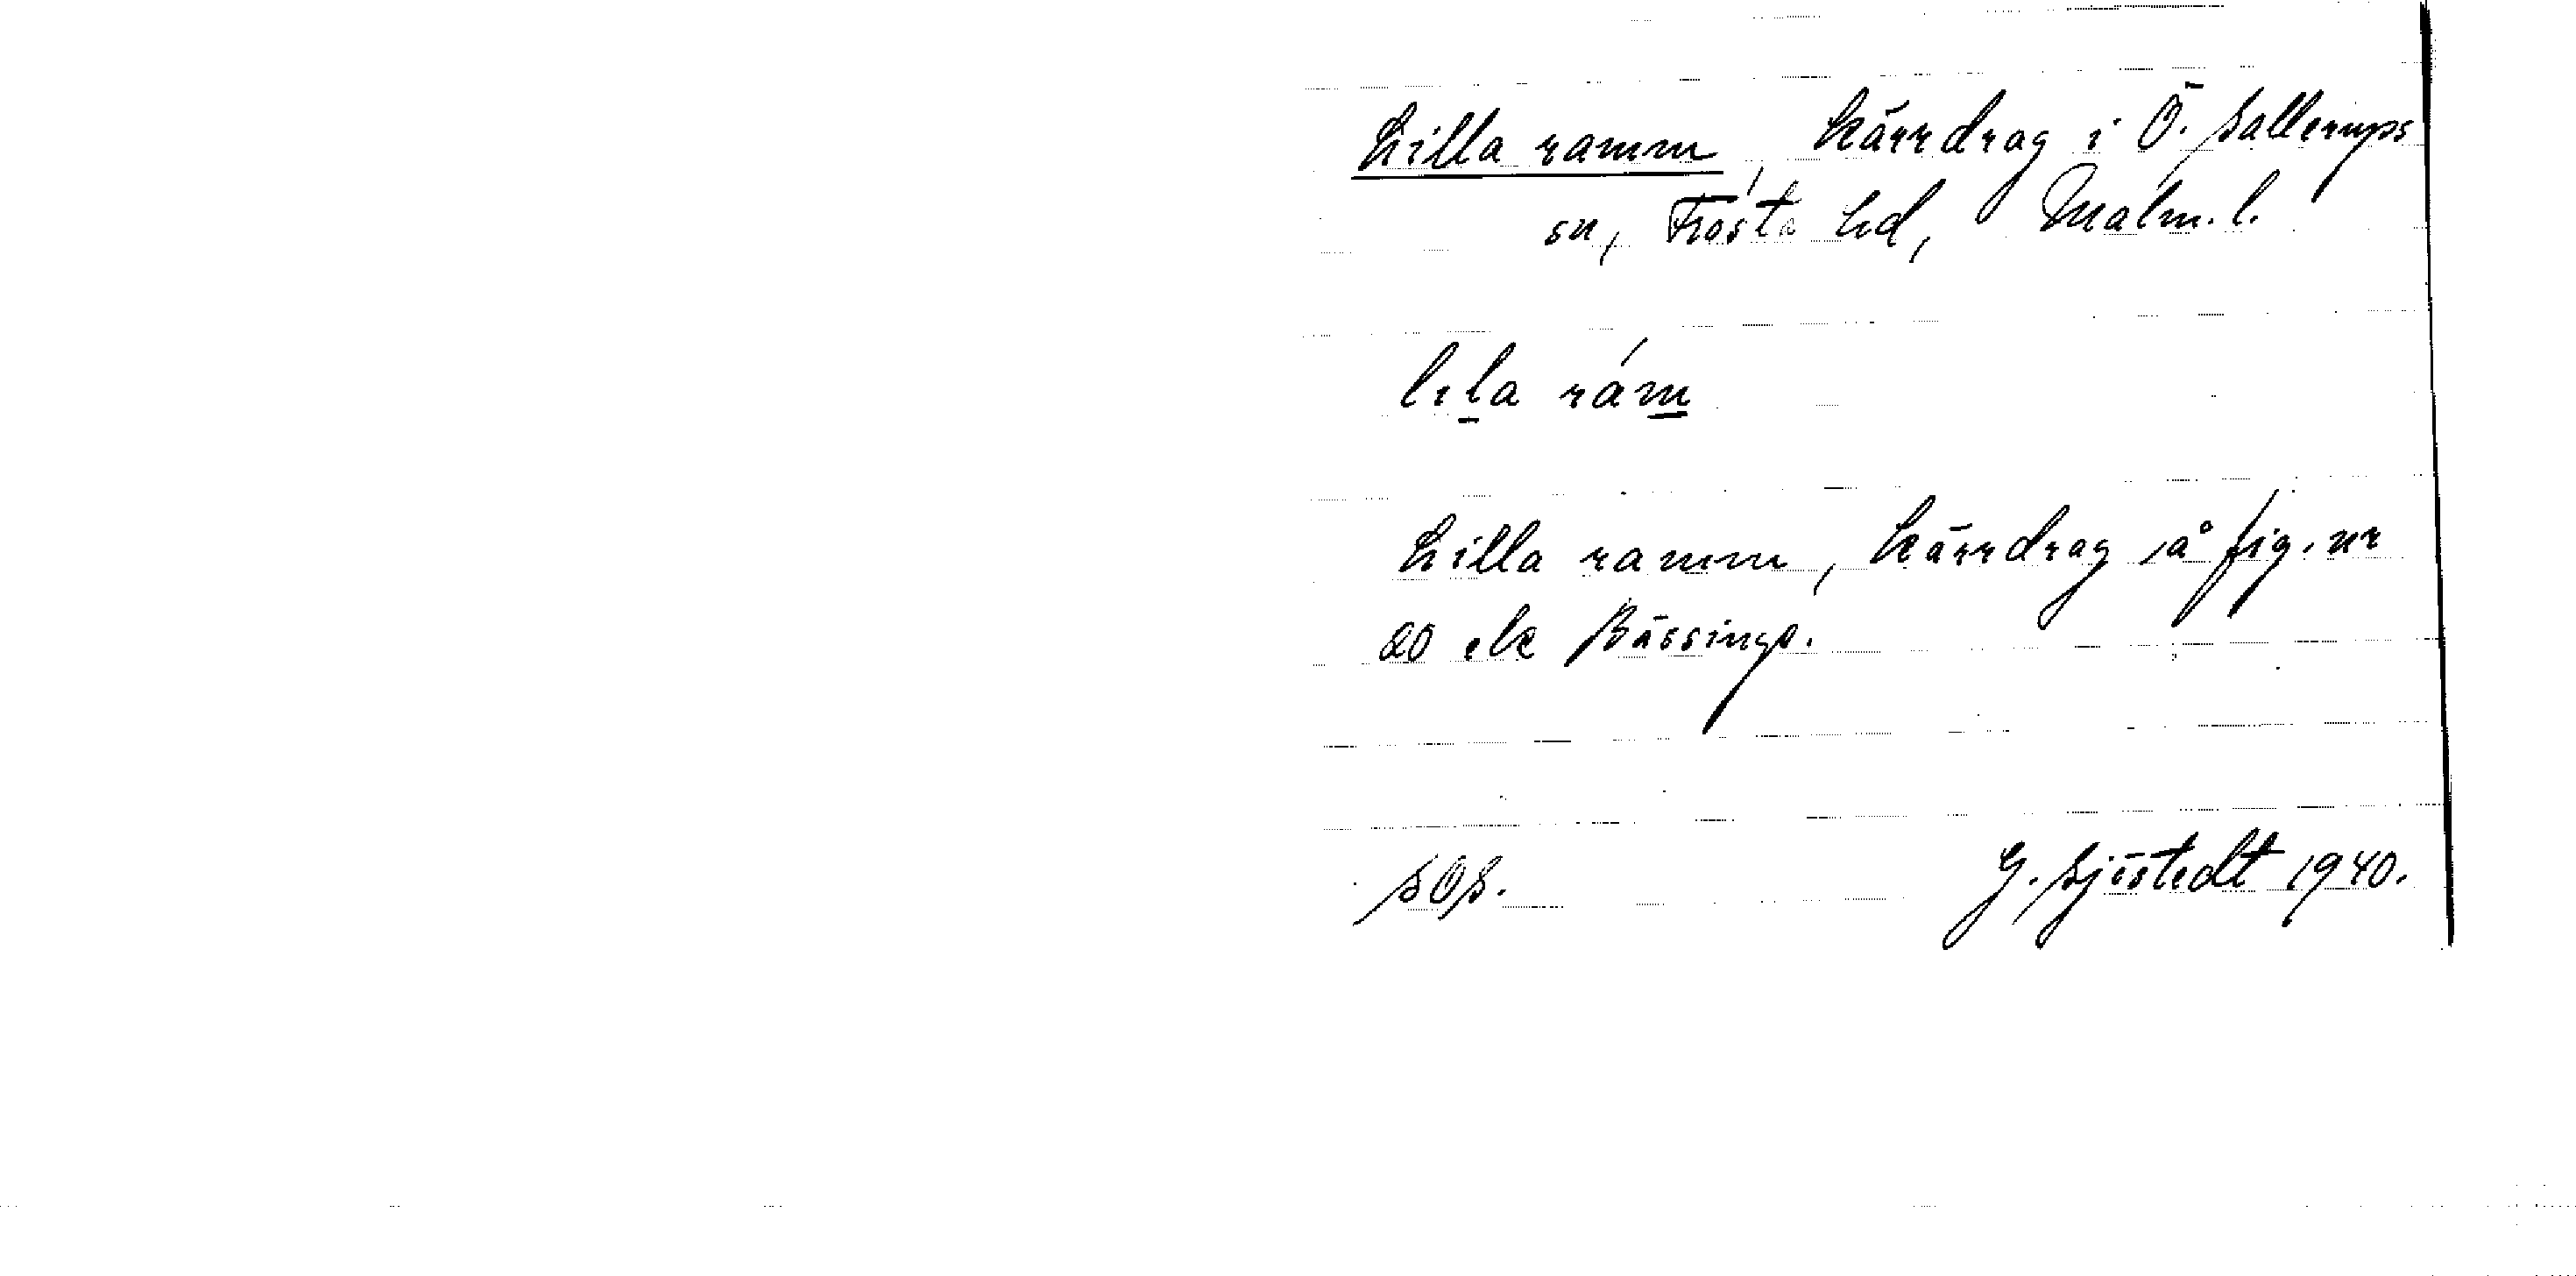 Lilla ramm, kärrdrag i Ö. Sallerups
sn, Frosta hd, Malm. l.
lila rám
Lilla ramm, kärrdrag å fig. nr
20 ek Bässinge.
SOS.
G. Sjöstedt 1940.